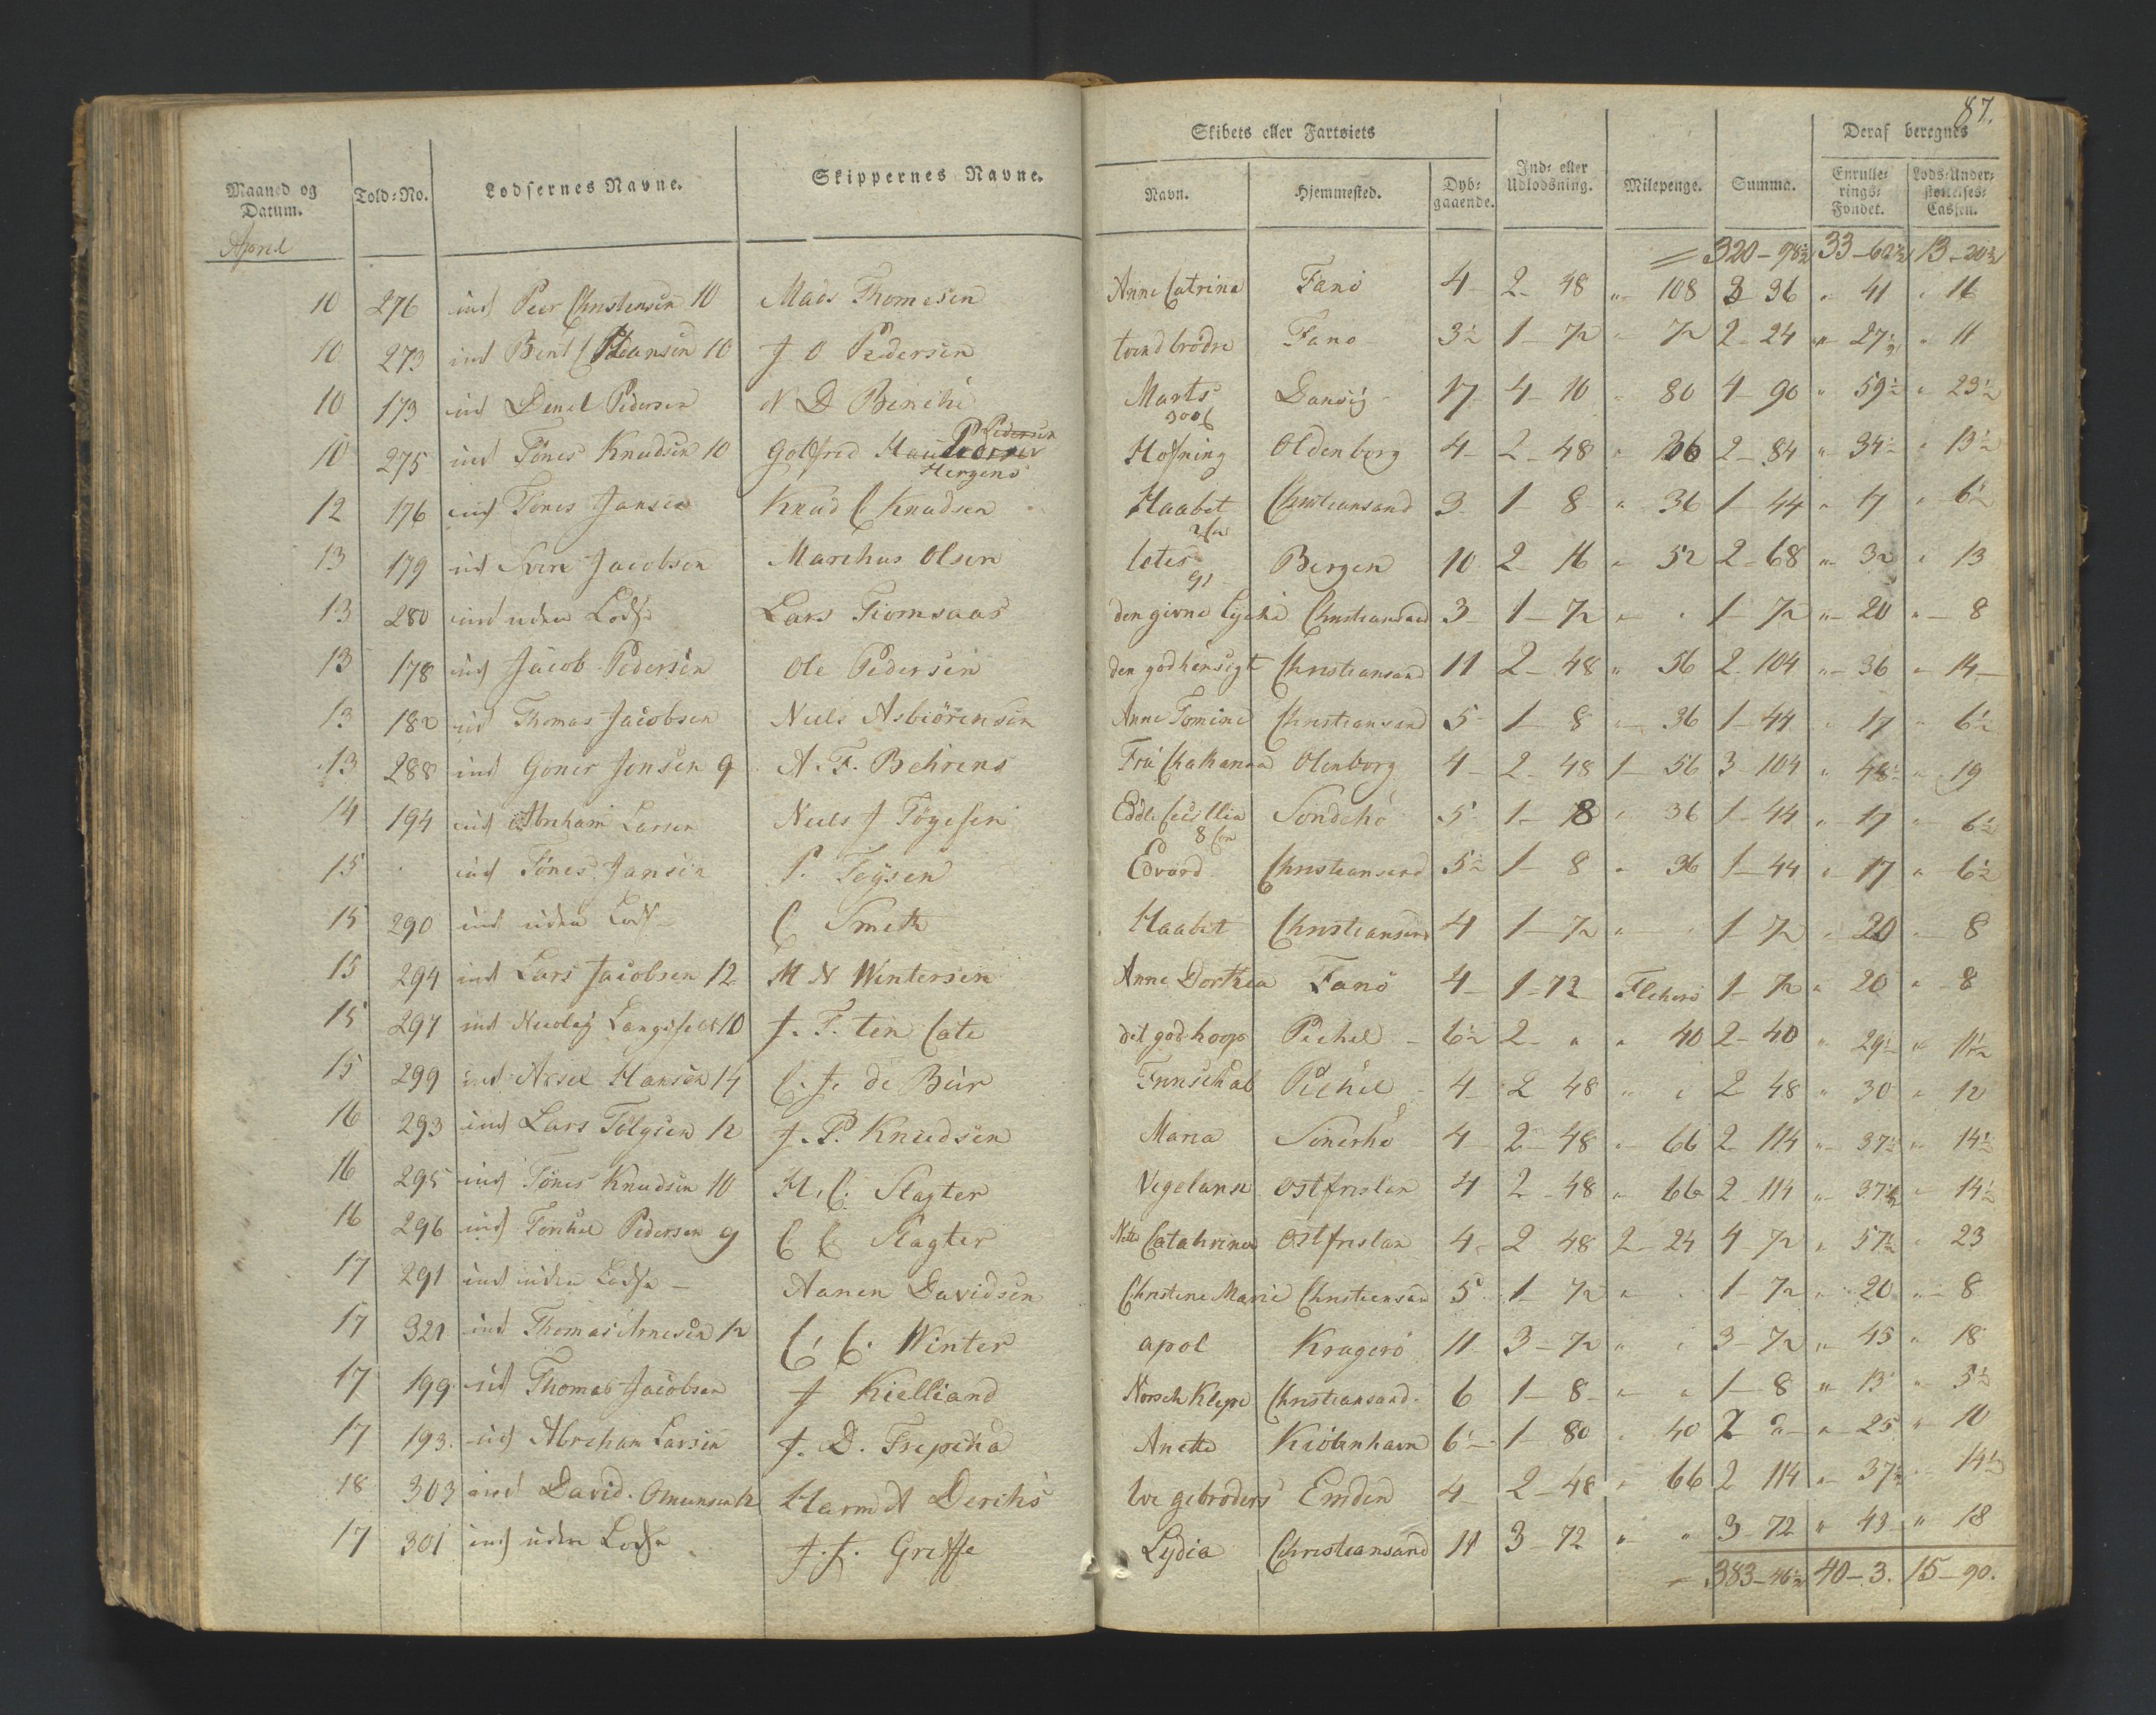 87.
Maaned og Datum. Told-No. Lodsernes Navne. Skippernes Navne. Skibets eller Fartøiets Navn. Hjemmested. Dybgaaende. Ind- eller Udlodsning. Milepenge. Summa. Deraf beregnes Enrullerings-Fondet. Lods-Understøttelses-Cassen.
April 320-98½ 33-62½ 13-20½
10 276 ind Peer Christensen 10 Mads Thomesen Anne Catrina Fanö 4 2-48 " 108 3 36 " 41 " 16
10 273 ind Bent Hansen 10 J O Pedersen tvend brödre Fanö 3½ 1-72 " 72 2-24 " 27½ " 11
10 173 ud Denel Pedersen N D Benche Marts Dansig 17 4-10 " 80 4-90 " 59½ " 23½
10 275 ind Tönes Knudsen 10 Gotfred Hergens Hofning Oldenborg 4 2-48 " 36 2-84 " 34½ " 13½
12 176 ud Tönes Jansen Knud C Knudsen Haabet Christiansand 3 1-8 " 36 1-44 " 17 " 6½
13 179 ud Sven Jacobsen Marchus Olsen Bergen 10 2-16 " 52 2-68 " 32 " 13
13 280 ind uden Lods Lars Tiomsaas den givne Lyche Christiansand 3 1-72 " " 1-72 " 20 " 8
13 178 ud Jacob Pedersen Ole Pedersen den god hensigt Christiansand 11 2-48 " 56 2-104 " 36 " 14
13 182 ud Thomas Jacobsen Niels Asbiörensen Anne Tomine Christiansand 5 1-8 " 36 1-44 " 17 " 6½
13 288 ind Goner Jonsen 9 A. F. Behrens Olenborg 4 2-48 1-56 3-104 " 48½ " 19
14 194 ud Abreham Larsen Niels J Tögesen Eddle Cecillia Sondehö 5 1-8 " 36 1-44 " 17 " 6½
15 ud Tönes Jansen P. Toysen Edvard Christiansand 5½ 1-8 " 36 1-44 " 17 " 6½
15 290 ind uden Lods C Smith Haabet Christiansand 4 1-72 " 1-72 " 20 " 8
15 294 ind Lars Jacobsen 12 M N Wintersen Anne Dorthea Fanö 4 1-72 Flekerö 1-72 " 20 " 8
15 297 ind Nicolay Langfeldt 10 J. F. ten Cate det god hoop Pechel 6½ 2 " " 40 2-40 " 29½ " 11½
15 299 ind Axsel Hansen 14 C. J. de Bur Pechel 4 2 48 " " 2 48 " 30 " 12
16 293 ind Lars Tölgsen 12 J. P. Knudsen Maria Sönerhö 4 2-48 " 66 2-114 " 37½ " 14½
16 295 ind Tönes Knudsen 10 H. C. Slagter Vegelanse Ostfreslan 4 2-48 " 66 2-114 " 37½ " 14½
16 296 ind Torchel Pedersen 9 C C Slagter Catahrina Ostfreslan 4 2-48 2-24 4-72 " 57½ " 23
17 291 ind uden Lods Aanen Davidsen Christine Marie Christiansand 5 1-72 " 1-72 " 20 " 8
17 321 ind Thomas Arnesen 12 C. C. Winter apol Kragerö 11 3-72 " " 3-72 " 45 " 18
17 199 ud Thomas Jacobsen J Kielliand Norsch Klepe Christiansand 6 1-8 " " 1-8 " 13 " 5½
17 193. ud Abreham Larsen J. D. Anette Kiöbenhavn 6½ 1-80 " 40 2 " " 25 " 10
18 303 ind David Omunsen 12 Harm A Derichs tve gebroders Emden 4 2-48 " 66 2 114 " 37½ " 14½
17 301 ind uden Lods J. J. Greffe Lydia Christiansand 11 3-72 " " 3-72 " 43 " 18
383-46½ 40-3. 15-90.